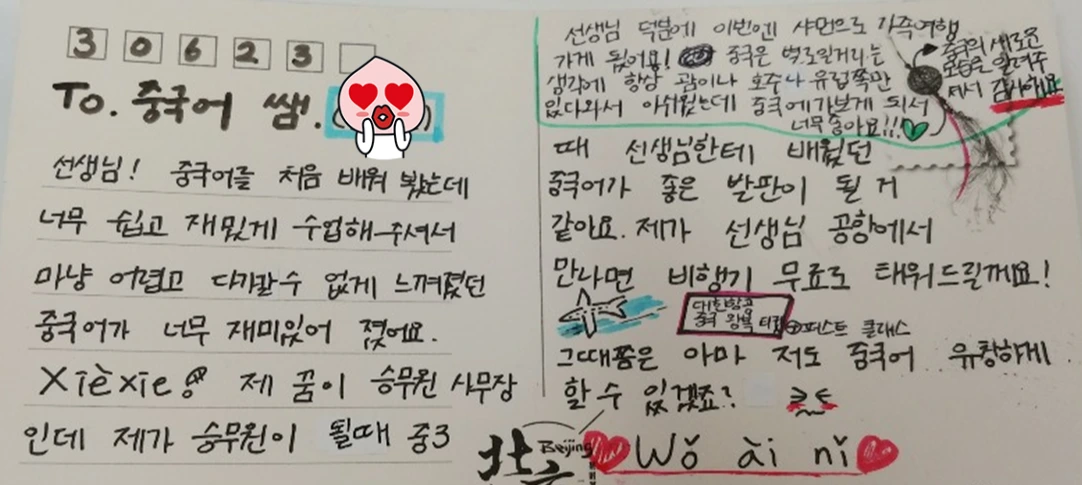 3 0 6 2 3
To. 중국어 쌤.
선생님! 중국어를 처음 배워 봤는데
너무 쉽고 재밌게 수업해주셔서
마냥 어렵고 다가갈수 없게 느껴졌던
중국어가 너무 재미있어 졌어요.
Xièxie! 제 꿈이 승무원 사무장
인데 제가 승무원이 될때 중3
때 선생님한테 배웠던
중국어가 좋은 발판이 될 거
같아요. 제가 선생님 공항에서
만나면 비행기 무료로 태워드릴께요!
대한항공
중국 왕복 티켓
퍼스트 클래스
그때쯤은 아마 저도 중국어 유창하게
할 수 있겠죠?
北京
Beijing
Wǒ ài nǐ
선생님 덕분에 이번에 샤먼으로 가족여행
가게 됐어요! 중국은 별로일거라는
생각에 항상 괌이나 호주나 유럽쪽만
갔다와서 아쉬웠는데 중국에가보게 되서
너무좋아요!!!
중국의 새로운
모습을 알려주
셔서 감사해요